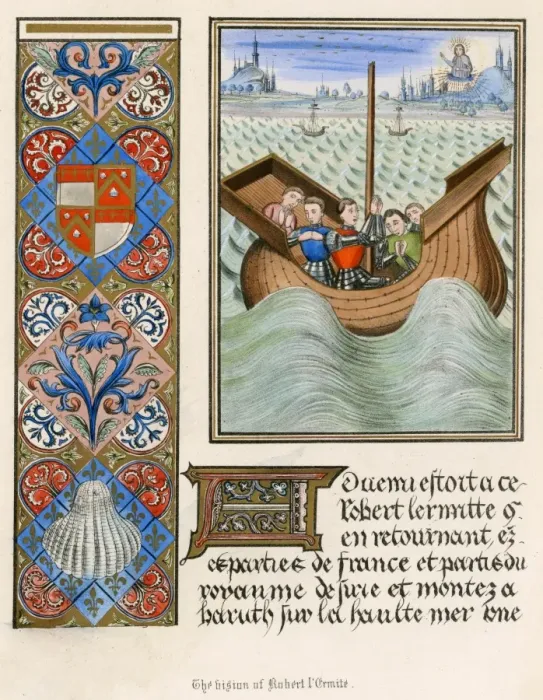 Aduenu estoit a ce-
Robert lermitte q̃
en retournant, ez-
es parties de france et partis du
royaume de surie et montez a
baruth sur la haulte mer vne
The vision of Robert l'Ermite.